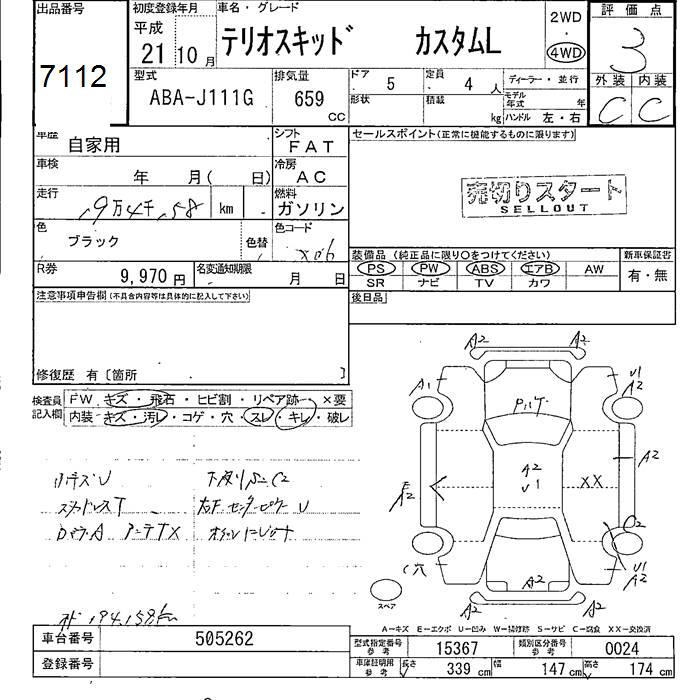 出品番号 初度登録年月 車名・グレード 2WD 評価点
7112 平成 21 10月 テリオスキッド カスタムL ・ 4WD 3
型式 排気量 ドア 5 定員 4人 ディーラー・並行 外装 内装
ABA-J111G 659 CC 形状 積載 kg モデル年式 年 C C
ハンドル 左・右
車歴 自家用 シフト FAT セールスポイント(正常に機能するものに限ります)
車検 年 月( 日) 冷房 AC
走行 19万4千,158 km 燃料 ガソリン 売切りスタート
SELLOUT
色 ブラック 色替 色コード X06
R券 9,970円 名変通知期限 月 日 装備品(純正品に限り○をつけてください) 新車保証書
PS PW ABS エアB AW 有・無
SR ナビ TV カワ
注意事項申告欄(不具合内容等は具体的に記入して下さい) 後日品
修復歴 有[箇所 ]
検査員記入欄 FW キズ・飛石・ヒビ割・リペア跡 ×要
内装 キズ・汚レ・コゲ・穴・スレ・キレ・破レ
A2 A2
A1 U1 A2
A2 U1 XX A2
A2
C2
C穴 U1 A2
A2
A2 A2
スペア
スタッドレスT
オド 194,158km
A-キズ E-エクボ U-凹み W-補修跡 S-サビ C-腐食 XX-交換済
車台番号 505262 型式指定番号 参考 15367 類別区分番号 参考 0024
登録番号 車庫証明用 参考 長さ 339 cm 幅 147 cm 高さ 174 cm